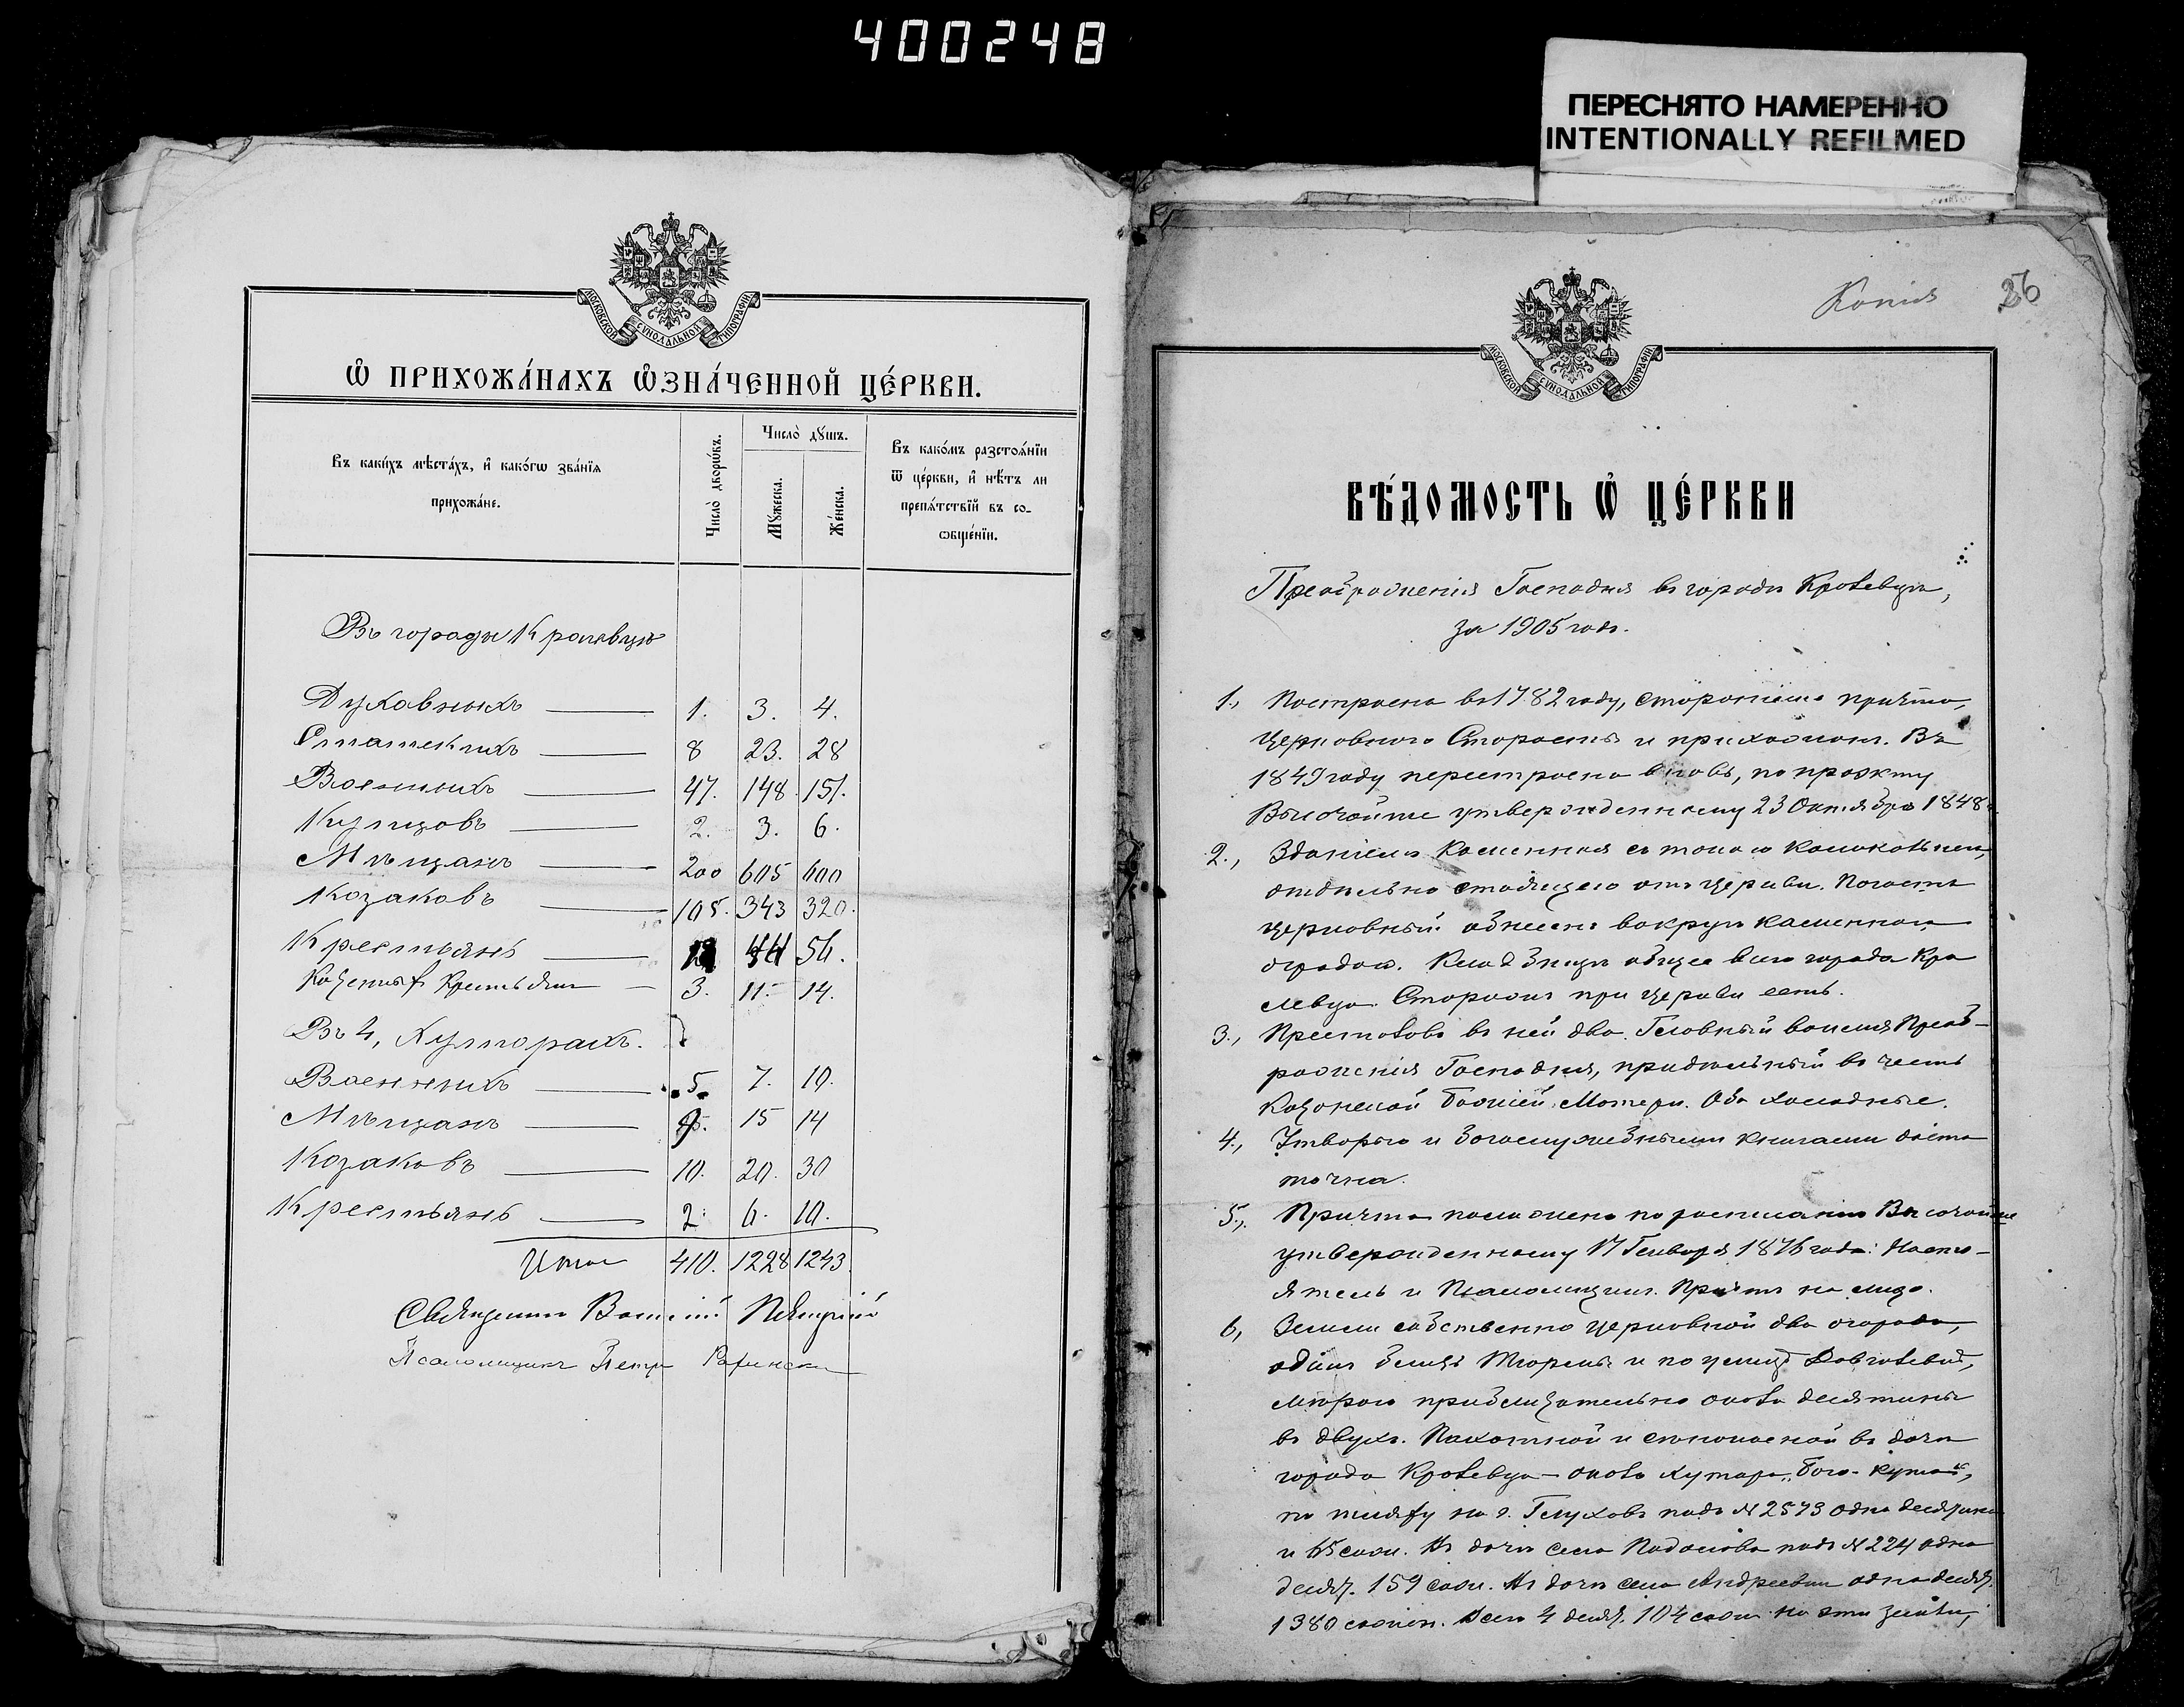 400248
ПЕРЕСНЯТО НАМЕРЕННО
INTENTIONALLY REFILMED
МОСКОВСКОЙ СѴНОДАЛЬНОЙ ТИПОГРАФІИ
Ѽ ПРИХОЖА́НАХЪ Ѽ҆ЗНА́ЧЕННОЙ ЦЕ́РКВИ.
Въ каки́хъ мѣста́хъ, и҆ како́гѡ зва́нїѧ
прихожа́не.
Число̀ дворѡ́въ.
Число̀ дꙋ́шъ.
Мꙋ́жеска.
Же́нска.
Въ како́мъ разстоѧ́нїи
ѿ це́ркви, и҆ нѣ́тъ ли
препѧ́тствїй въ со-
ѡбще́нїи.
Въ городѣ Кролевцѣ
Духовныхъ 1. 3. 4.
Статскихъ 8 23. 28
Военныхъ 47. 148. 151.
Купцовъ 2. 3. 6.
Мѣщанъ 200 605 600
Козаковъ 105. 343 320.
Крестьянъ 44 56.
Казенныхъ Крестьянъ 3. 11. 14.
Въ 4, Хуторахъ.
Военныхъ 5. 7. 10.
Мѣщанъ 15 14
Козаковъ 10. 20. 30
Крестьянъ 2. 6. 10.
Итого 410. 1228 1243.
Священникъ Василій
Псаломщикъ Петръ
Копія
26
МОСКОВСКОЙ СѴНОДАЛЬНОЙ ТИПОГРАФІИ
ВѢ́ДОМОСТЬ Ѽ ЦЕ́РКВИ
Преображенія Господня въ городѣ Кролевцѣ,
за 1905 годъ.
1., Построена въ 1782 году, стараніемъ причта,
церковнаго Старосты и прихожанъ. Въ
1849 году перестроена вновь, по проэкту
Высочайше утвержденному 23 Октября 1848 г.
2., Зданіемъ Каменная съ такою колокольнею,
отдѣльно стоящею отъ церкви. Погостъ
церковный обнесенъ вокругъ каменною
оградою. Кладбище общее всего города Кро
левца. Сторожка при церкви есть.
3., Престоловъ въ ней два. Главный во имя Преоб-
раженія Господня, придѣльный въ честь
Казанской Божіей Матери. Оба холодные.
4., Утварью и богослужебными книгами доста
точна.
5., Причта положено по росписанію Высочайше
утвержденному 17 Генваря 1876 года: Насто-
ятель и Псаломщикъ. Причтъ на лицо.
6., Земли собственно церковной два огорода,
одинъ близь Тюрьмы и по улицѣ
мѣрою приблизительно около десятины
въ двухъ. Пахотной и сѣнокосной въ дачѣ
города Кролевца — около хутора
по шляху на г. Глуховъ подъ № 2573 одна десятина
и 65 саж. Въ дачѣ села Подолова подъ № 224 одна
десят. 159 саж. Въ дачѣ села Андреевки одна десят.
1380 сажен. Всего 4 десят. 104 саж. на эти земли,